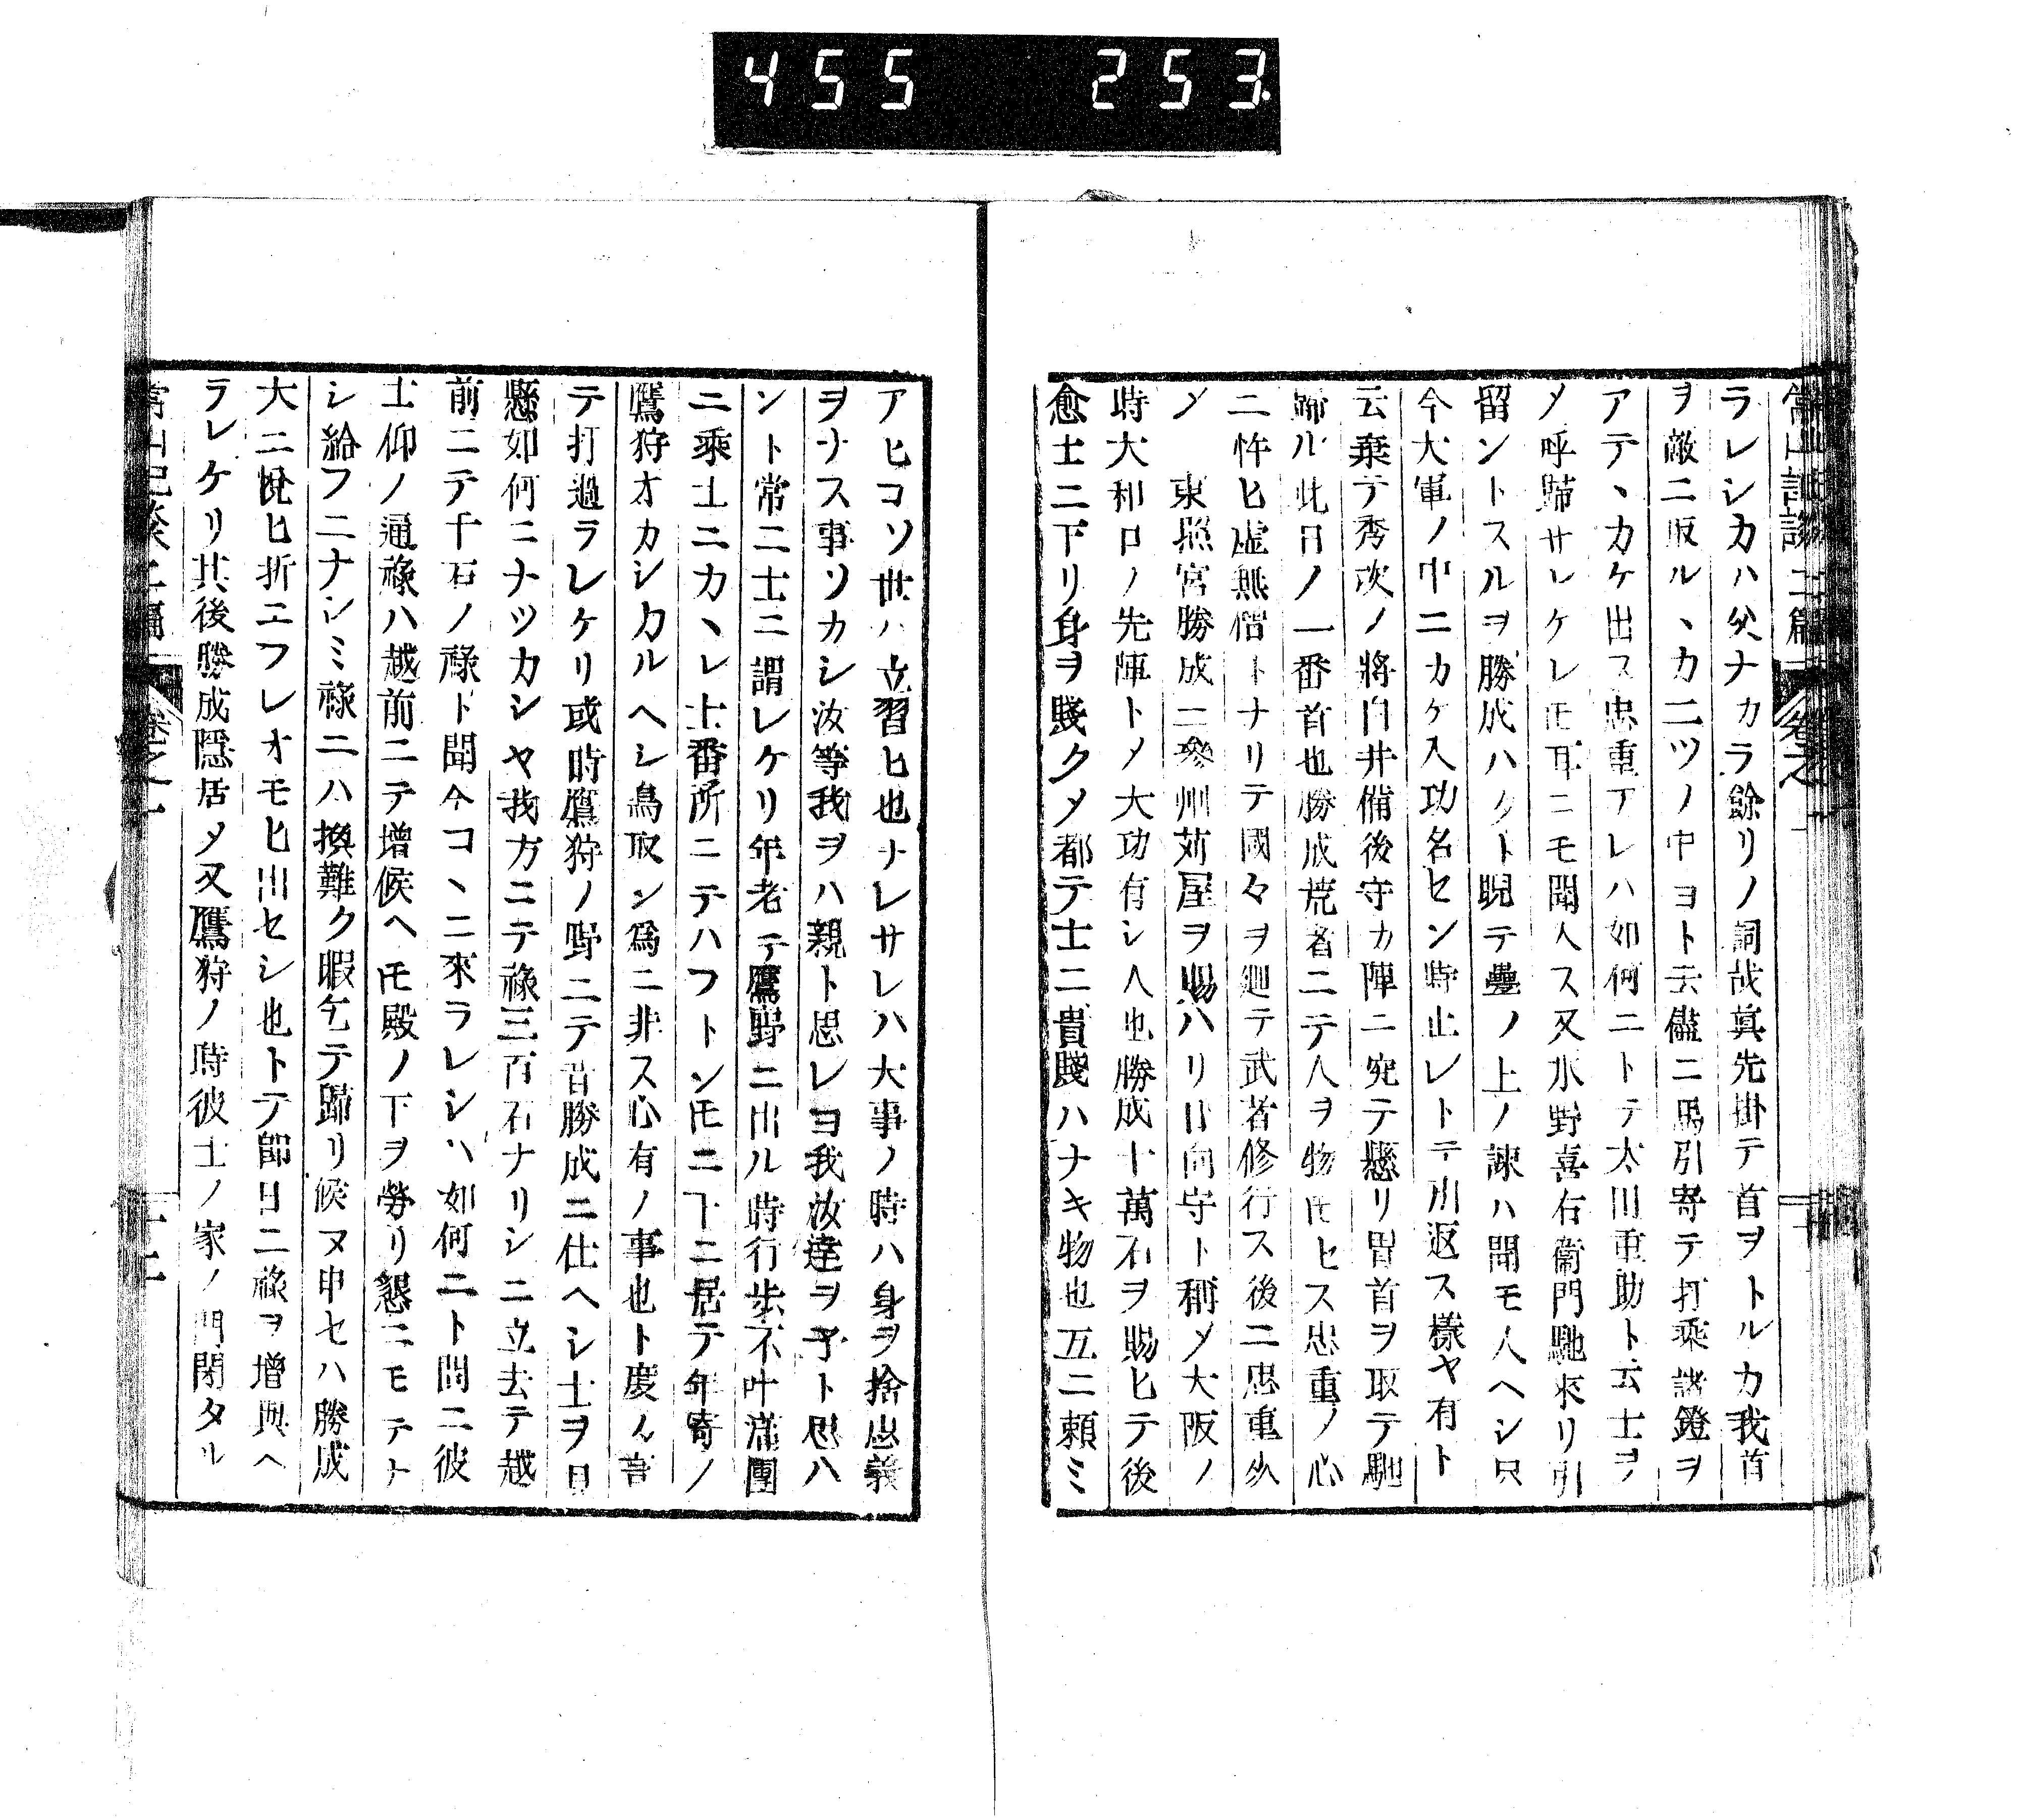 455 253
ラレシカハ父ナカラ餘リノ詞哉眞先掛テ首ヲトルカ我首
ヲ敵ニ取ル丶カ二ツノ中ヨト云儘ニ馬引寄テ打乘諸鐙ヲ
アテ丶カケ出ス忠重アレハ如何ニトテ太田重助ト云士ヲ
〆呼歸サレケレ𪜈耳ニモ聞入ス又水野喜右衞門馳來リ引
留ントスルヲ勝成ハタト睨テ疊ノ上ノ諫ハ聞モ人ヘシ只
今大軍ノ中ニカケ入功名セン時止レトテ引返ス樣ヤ有ト
云棄テ秀次ノ將白井備後守カ陣ニ突テ懸リ冑首ヲ取テ馳
歸ル此日ノ一番首也勝成荒者ニテ人ヲ物𪜈セス忠重ノ心
ニ忤ヒ虛無僧トナリテ國々ヲ廻テ武者修行ス後ニ忠重幺
〆　東照宮勝成ニ參州苅屋ヲ賜ハリ日向守ト稱〆大阪ノ
時大和口ノ先陣ト〆大功有シ人也勝成十萬石ヲ賜ヒテ後
愈士ニ下リ身ヲ賤ク〆都テ士ニ貴賤ハナキ物也互ニ賴ミ
アヒコソ世ハ立習ヒ也ナレサレハ大事ノ時ハ身ヲ捨忠義
ヲナス事ソカシ汝等我ヲハ親ト思レヨ我汝達ヲ子ト思ハ
ント常ニ士ニ謂レケリ年老テ鷹野ニ出ル時行步不叶蒲團
ニ乘士ニカ丶レ士番所ニテハフトン𪜈ニ下ニ居テ年寄ノ
鷹狩オカシカルヘシ鳥取ン爲ニ非ス心有ノ事也ト度々言
テ打過ラレケリ或時鷹狩ノ野ニテ昔勝成ニ仕ヘシ士ヲ見
懸如何ニナツカシヤ我方ニテ祿三百石ナリシニ立去テ越
前ニテ千石ノ祿ト聞今コ丶ニ來ラレシハ如何ニト問ニ彼
士仰ノ通祿ハ越前ニテ增候ヘ𪜈殿ノ下ヲ勞リ懇ニモテナ
シ給フニナシミ祿ニハ換難ク暇乞テ歸リ候ヌ申セハ勝成
大ニ悅ヒ折ニフレオモヒ出セシ也トテ卽日ニ祿ヲ增與ヘ
ラレケリ其後勝成隱居〆又鷹狩ノ時彼士ノ家ノ門閉タル